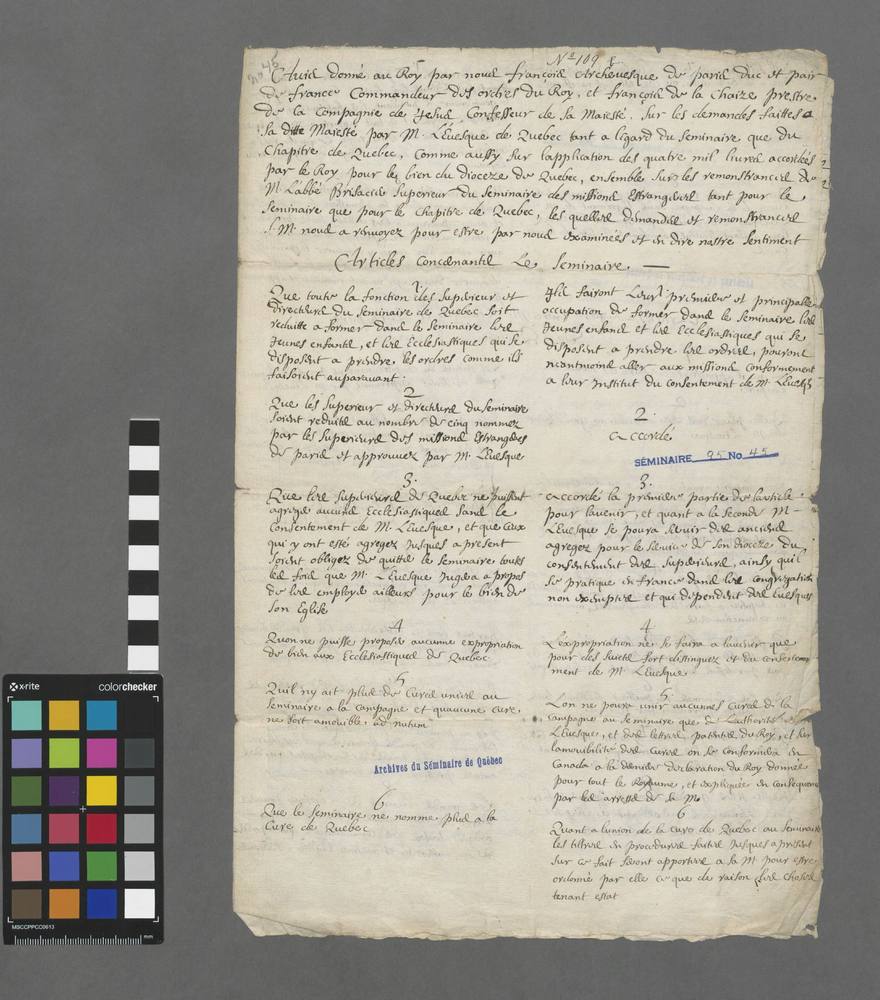 No 45
No 109 8
Avis donné au Roy par nous françois Archevesque de paris duc et pair
de france Commandeur des ordres du Roy, et françois de la Chaize prestre
de la Compagnie de Jesus Confesseur de sa Maiesté, sur les demandes faittes a
sa ditte Maiesté par M. L'Evesque de Quebec tant a lgard du seminaire que du
Chapitre de Quebec, comme aussy sur l'application des quatre mil livres accordés
par le Roy pour le bien du dioceze de Quebec, ensemble sur les remonstrances de
M. L'abbé Brisacier Superieur du Seminaire des missions Estrangeres tant pour le
seminaire que pour le Chapitre de Quebec, les quelles demandes et remonstrances
S. M. nous a renvoyez pour estre par nous examinées et en dire nostre sentiment
Articles Concernants Le Seminaire
1
Que toute la fonction des Superieur et
directeurs du Seminaire de Quebec soit
reduitte a former dans le seminaire les
jeunes enfants, et les Ecclesiastiques qui se
disposent a prendre les ordres comme ils
faisoient auparavant.
2
Que les Superieur et directeurs du Seminaire
soient reduits au nombre de cinq nommez
par les Superieurs des missions Estrangeres
de paris et approuvez par M. L'Evesque
3.
Que les Superieurs de Quebec ne puissent
agreger aucuns Ecclesiastiques sans le
Consentement de M. L'Evesque, et que Ceux
qui y ont esté agregez jusques a present
soient obligez de quitter le seminaire toutes
les fois que M. L'Evesque jugera a propos
de les employer ailleurs pour le bien de
son Eglise
4
Quon ne puisse proposer aucune expropriation
de bien aux Ecclesiastiques de Quebec
5
Quil ny ait plus de Cures unies au
seminaire a la campagne et quaucune cure
ne soit amovible ad nutum
Archives du Séminaire de Québec
6
Que le Seminaire ne nomme plus a la
Cure de Quebec
1
Ils fairont Leur premiere et principalle
occupation de former dans le Seminaire les
jeunes enfans et les Ecclesiastiques qui se
disposent a prendre les ordres, pouront
neantmoins aller aux missions conformement
a leur Institut du consentement de M. L'Evesq
2.
accordé
SÉMINAIRE 95 No 45
3.
accordé la premiere partie de larticle
pour lavenir, et quant a la seconde M
L'Evesque se poura servir des anciens
agregez pour le service de son dioceze du
consentement des Superieurs, ainsy quil
se pratique en france dans les congregations
non exemptes et qui dependent des Evesques
4
L'expropriation ne se faira a lavenir que
pour des sujets fort distinguez et du consente
ment de M. L'Evesque
5.
L'on ne poura unir aucunes Cures de la
campagne au seminaire que de Lauthorité
L'Evesque, et des lettres patentes du Roy, et sur
lamovibilité des Cures on se conformera en
Canada a la derniere declaration du Roy donnée
pour tout le Royaume, et expliquée en consequence
par les arrests de S. M.
6
Quant a lunion de la cure de Quebec au Seminaire
les titres en procedures faites jusques a present
sur ce fait seront apportées a sa M. pour estre
ordonné par elle ce que de raison les choses
tenant estat
x-rite
colorchecker
MSCCPPCC0613
mm